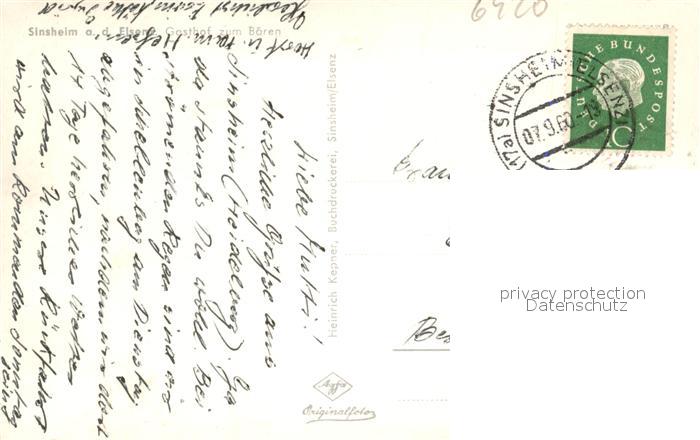 6420
Sinsheim a. d. Elsenz Gasthof zum Bären
Liebe Mutti!
Herzliche Grüße aus
Sinsheim (Heidelberg). Ja
da staunst Du wohl. Bei
strömenden Regen sind wir
in am Dienstag
abgefahren, nachdem wir dort
14 Tage herrliches Wetter
hatten. Unsere Rückfahrt
wird am kommenden Sonntag
sein.
Horst u. Fam.
Heinrich Kepner, Buchdruckerei, Sinsheim/Elsenz
Agfa
Originalfoto
DEUTSCHE BUNDESPOST
(17a) SINSHEIM (ELSENZ)
07.9.60
Frau
Bes
privacy protection
Datenschutz